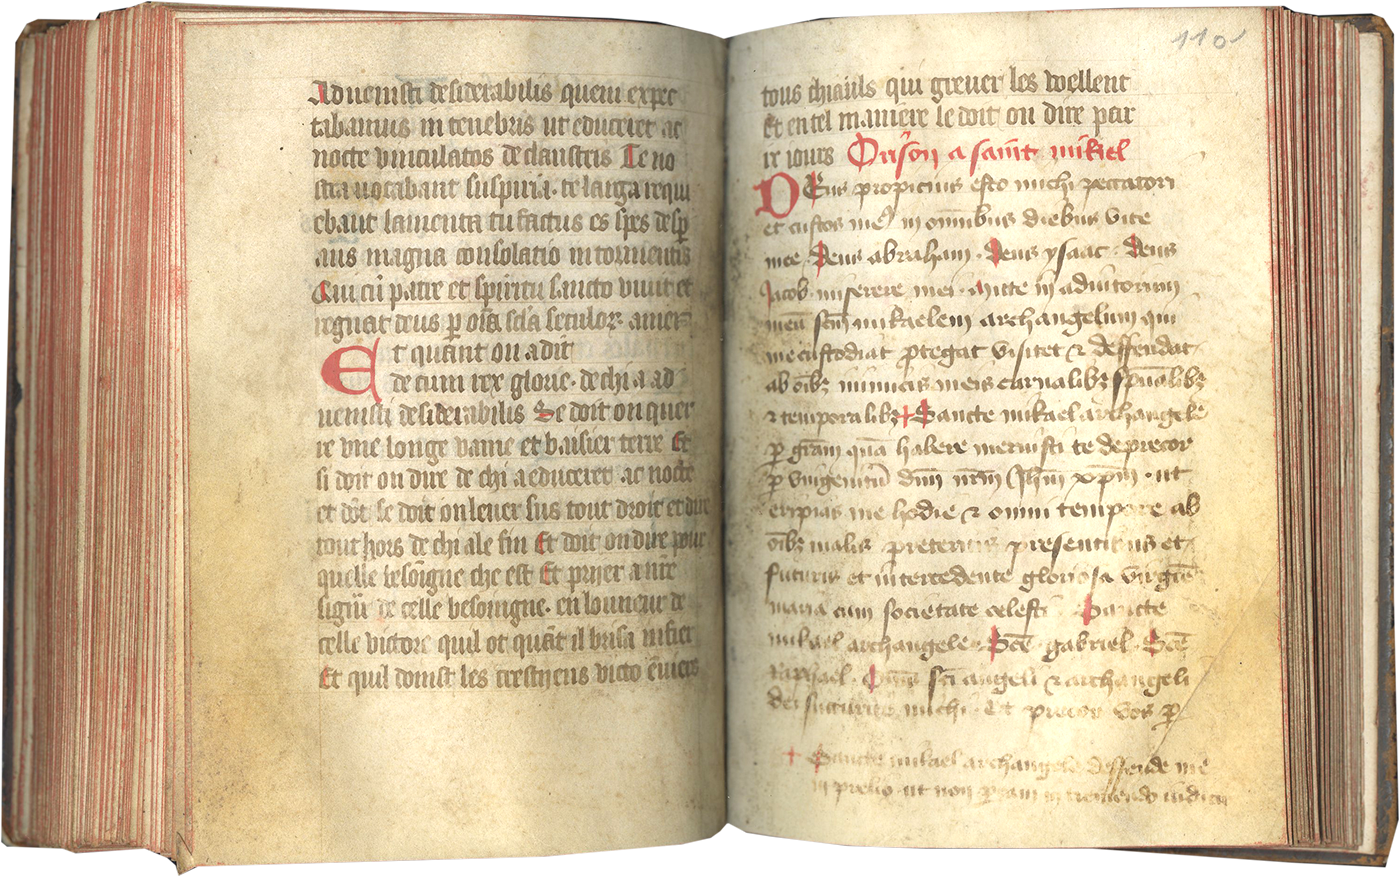 Advenisti desiderabilis quem expec
tabamus in tenebris ut educeret ac
nocte vinculatos de claustris Te no
stra vocabant suspiria · te larga requi
ebant lamenta tu factus es spes desp
aus magna consolatio in tormentis
Qui cū patre et spiritu sancto vivit et
regnat deus p oīa scła seculoꝝ · amen
Et quant on a dit
de cum rex glorie · de chi a ad
venisti desiderabilis Se doit on quer
re une longe vaine et baisier terre Et
si doit on dire de chi a educeret ac nocte
et dōt se doit on lever sus tout droit et dire
tout hors de chi a le fin Et doit on dire pour
quelle besoigne che est Et pryer a nr̄e
signr̄ de celle besoingne · en louneur de
celle victore quil ot quāt il brisa infier
Et quil doinst les crestyens victo
110
tous chiauls qui grever les voellent
Et en tel maniere le doit on dire par
ix iours Orison a saint mikiel
DEus propicius esto michi peccatori
et custos me in omnibus diebus vite
mee · Deus abraham · Deus ysaac · Deus
Jacob · miserere mei · Mitte in adiutorium
meū scm̄ mikaelem archangelum qui
me custodiat ꝓtegat visitet ⁊ deffendat
ab oībꝫ inimicis meis carnalibꝫ spūalibꝫ
⁊ temporalibꝫ + Sancte mikael archangele
p grām quā habere meruisti te deprecor
p unigenitū dnm̄ nrm̄ Jhm̄ xpm̄ · ut
eripias me hodie ⁊ omni tempore ab
oībꝫ malis preteritis presentibus et
futuris et intercedente gloriosa virgine
maria cum societate celesti · Sancte
mikael archangele · Scē gabriel · Scē
Raphael · Omēs sci angeli ⁊ archangeli
dei succurite michi · Et precor vos p
+ Sancte mikael archangele deffende me
in prelio · ut non peam in tremendo iudicio